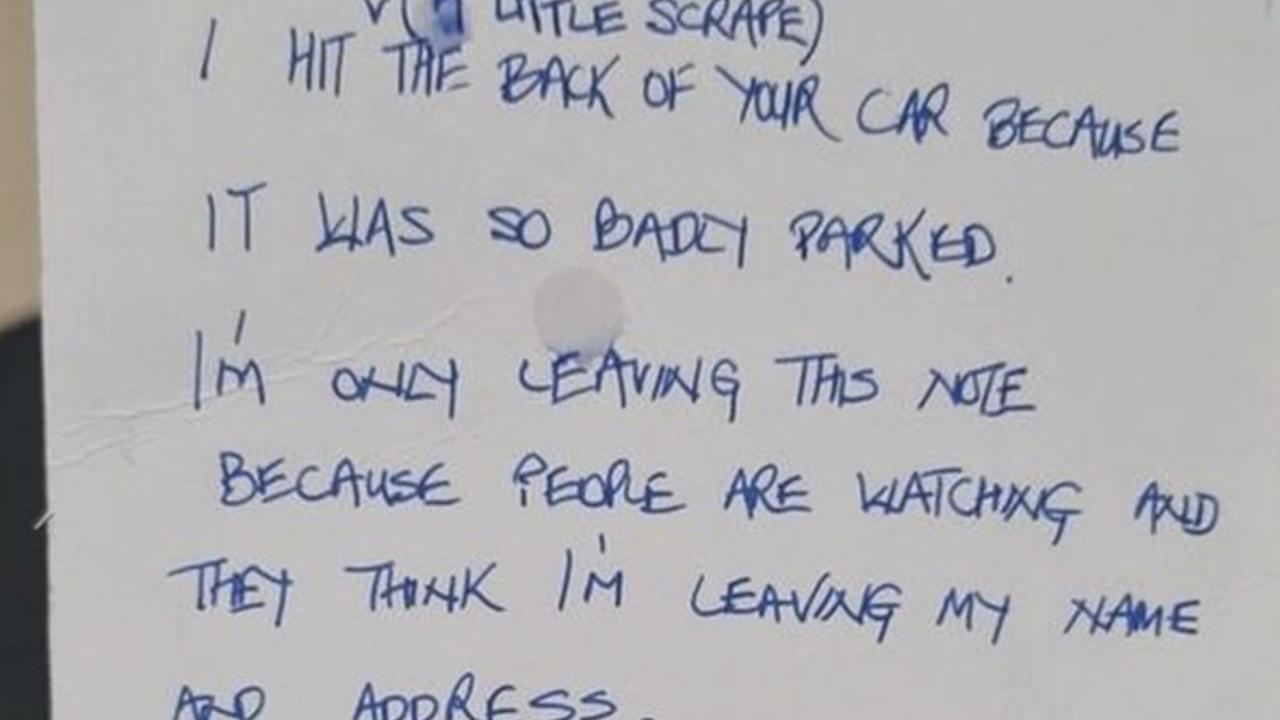 (A LITTLE SCRAPE)
I HIT THE BACK OF YOUR CAR BECAUSE
IT WAS SO BADLY PARKED.
I'M ONLY LEAVING THIS NOTE
BECAUSE PEOPLE ARE WATCHING AND
THEY THINK I'M LEAVING MY NAME
AND ADDRESS.